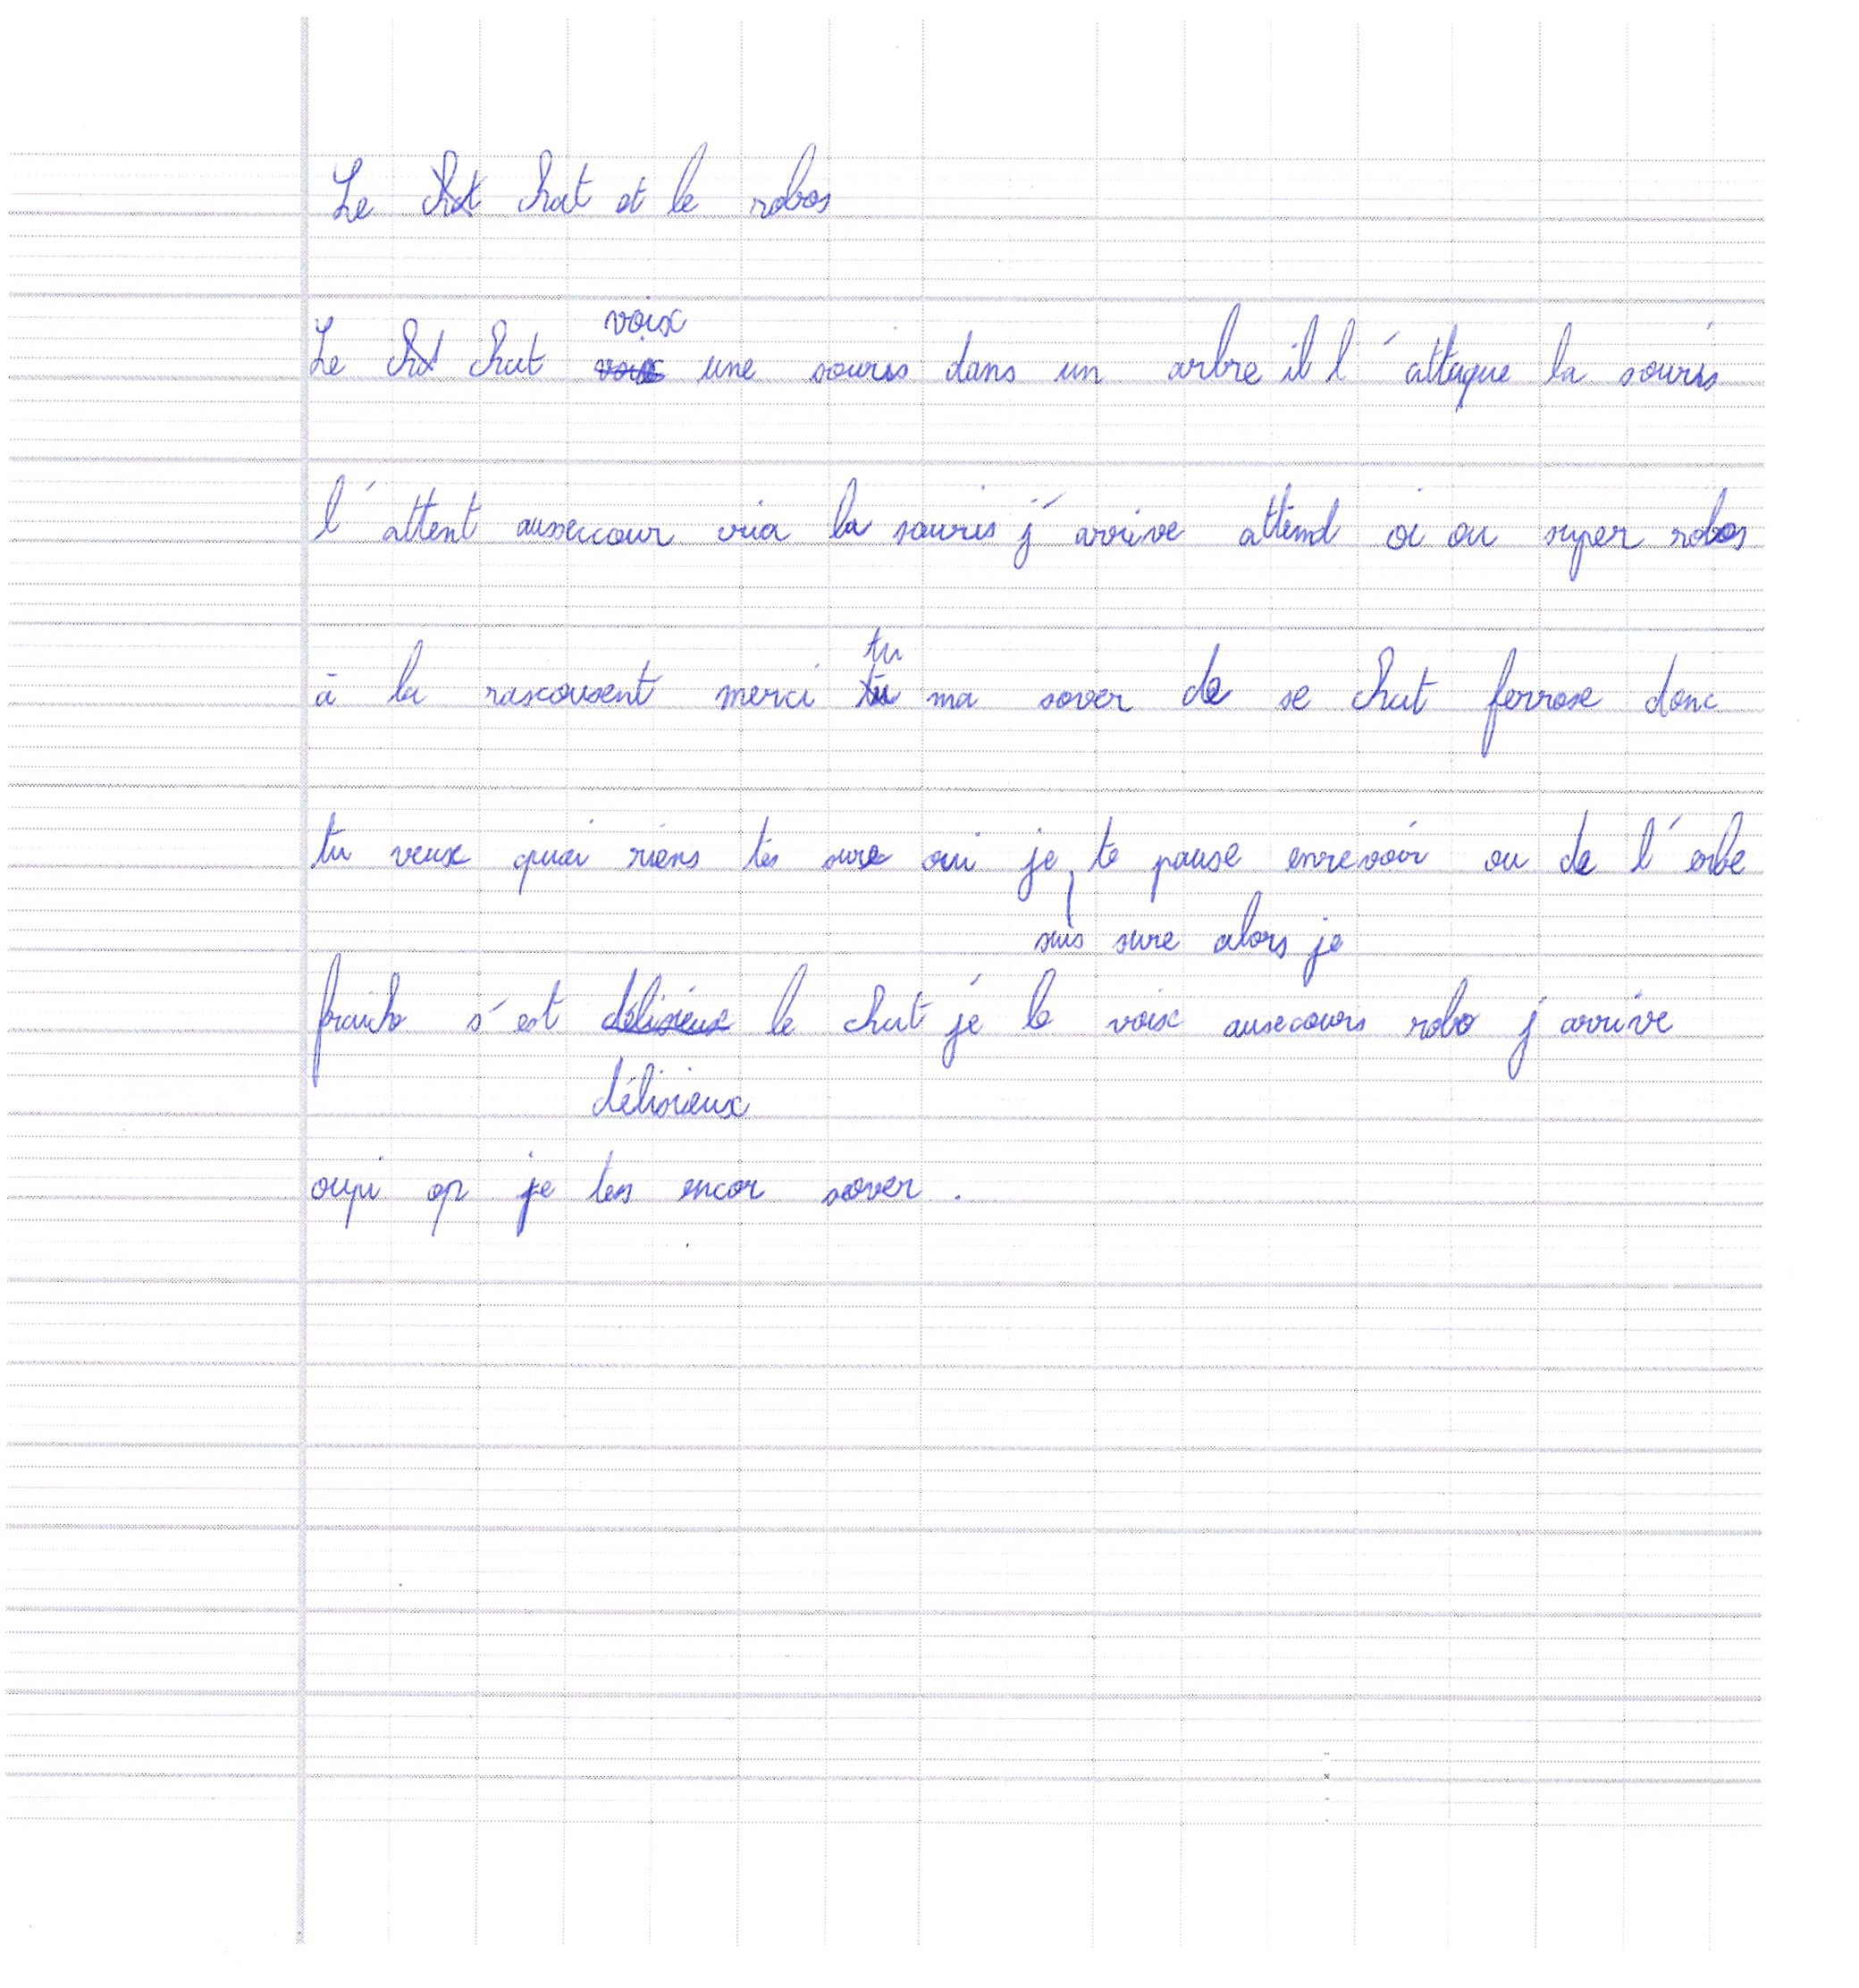 Le chat chat et le robos
voix
Le chat chat voix une souris dans un arbre il l'attaque la souris
l'attent aussecour cria la souris j'arrive attend oi ou super robos
tu
à la rascousent merci tu ma sover de se chat ferrose donc
tu veux quoi riens tes sure oui je te pause enrevoir ou de l'erbe
suis sure alors je
fraiche s'est délisieux le chat je le voix ausecours robo j'arrive
délisieux
oupi op je tes encor sover.